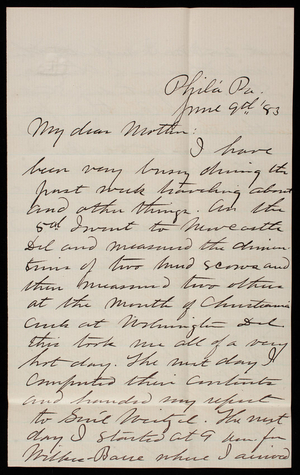 Phila Pa.
June 9th '83
My dear Mother:
I have
been very busy during the
past week traveling about
and other things. On the
5th I went to Newcastle
Del and measured the dimen-
sions of two mud scows and
then measured two others
at the mouth of Christiana
Creek at Wilmington Del
this took me all of a very
hot day. The next day I
computed their contents
and handed my report
to Gen'l Weitzel. The next
day I started at 9 a.m. for
Wilkes-Barre where I arrived